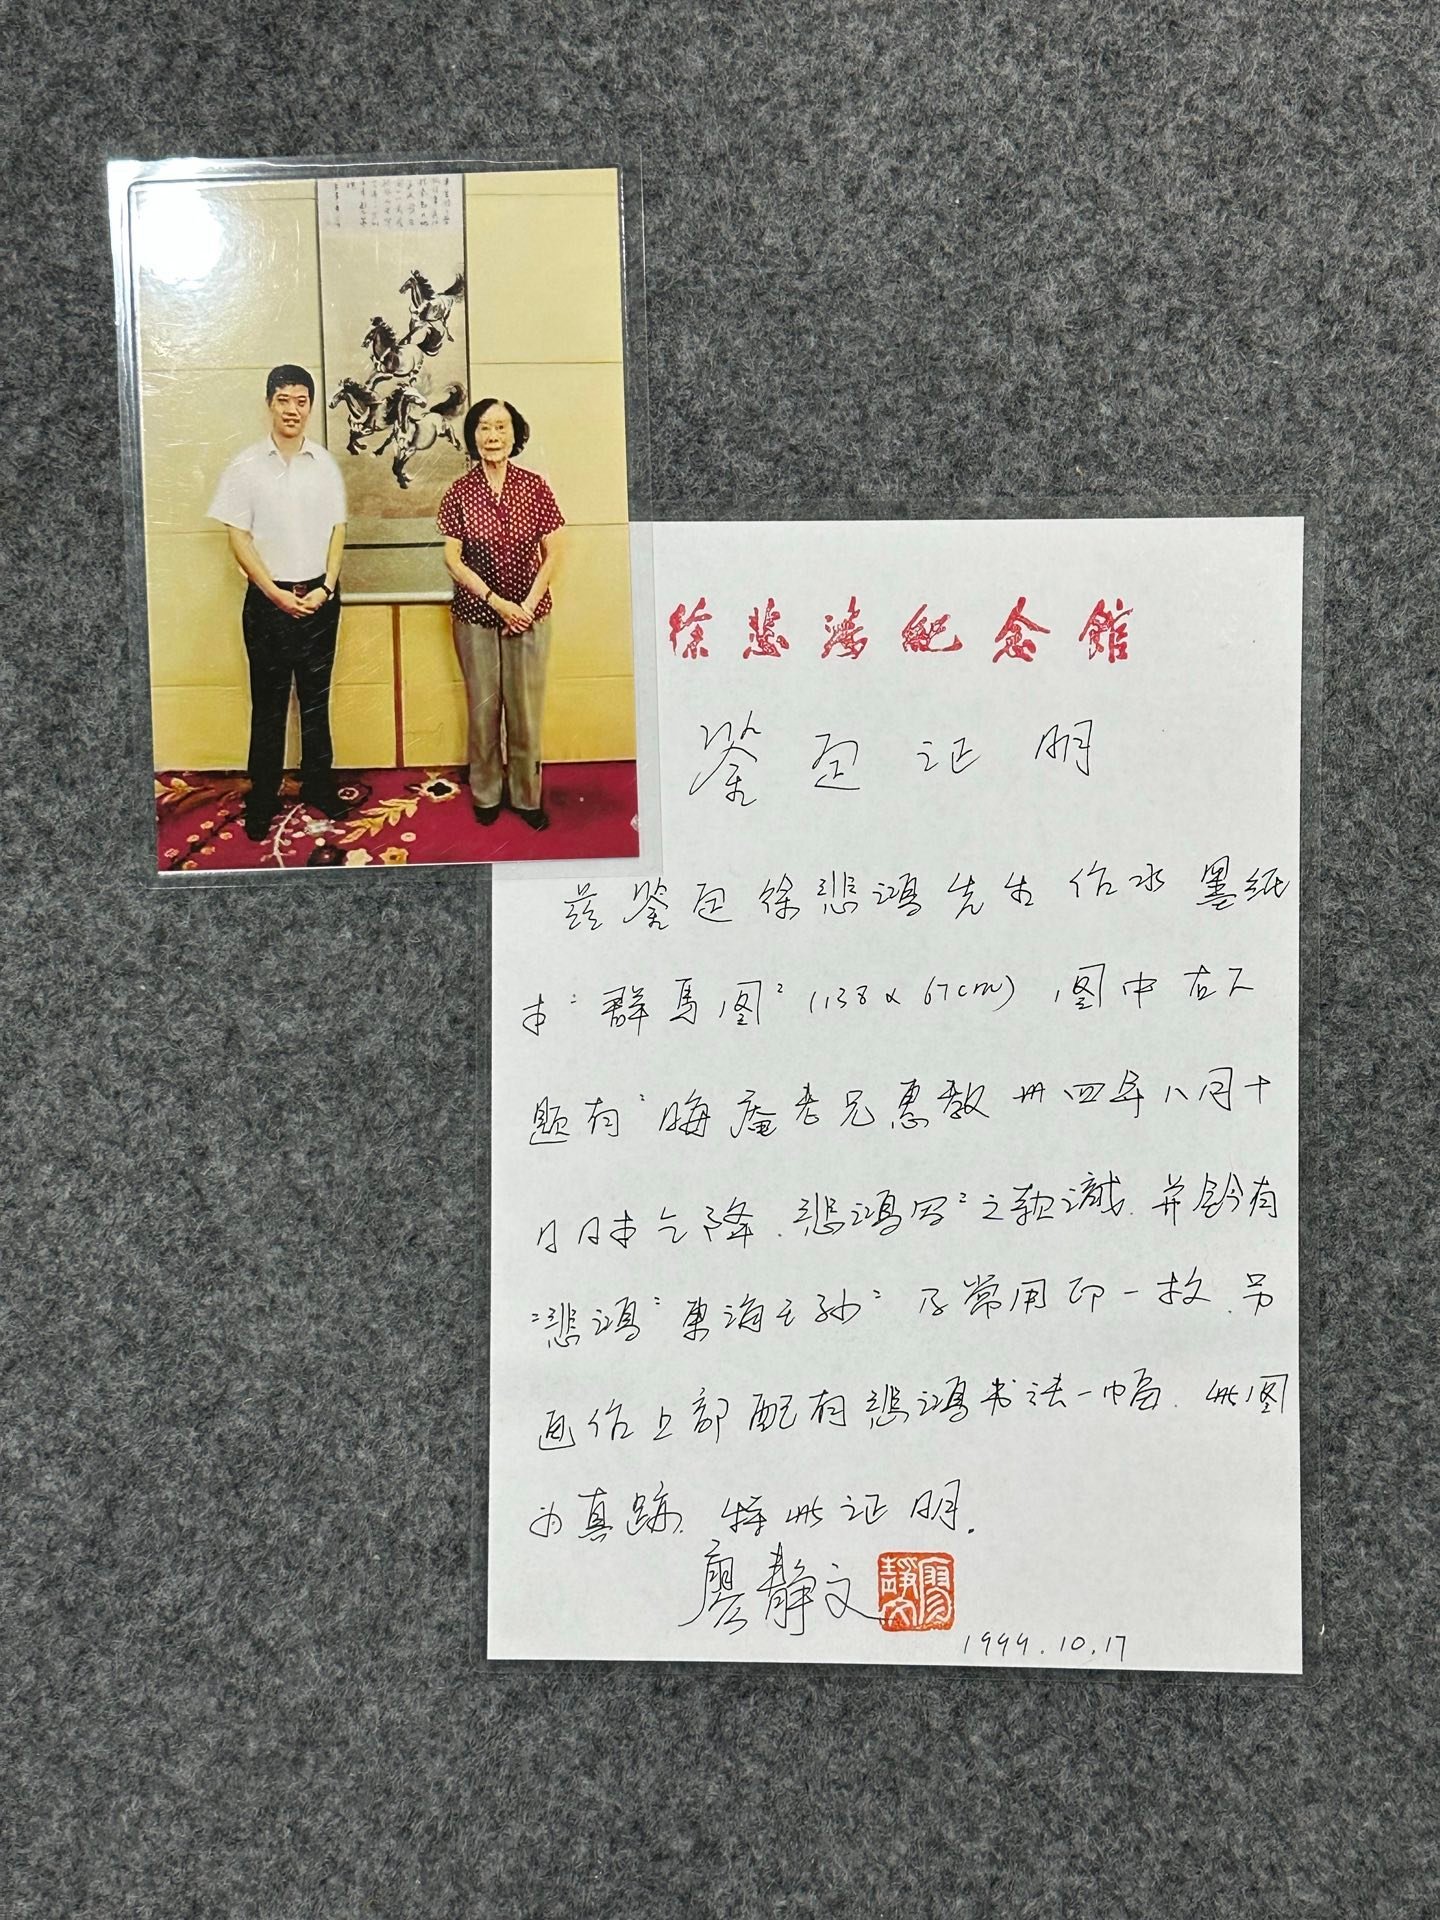 徐悲鴻紀念館
鉴定证明
兹鉴定徐悲鸿先生作水墨纸
本“群馬图”(138x67cm)，图中右下
题有“晦庵老兄惠教 卅四年八月十
日日本乞降.悲鸿写”之款识.并钤有
“悲鸿”“東海王孙”及常用印一枚.另
画作上部配有悲鸿书法一幅.此图
为真跡.特此证明.
廖静文 廖靜文
1999.10.17